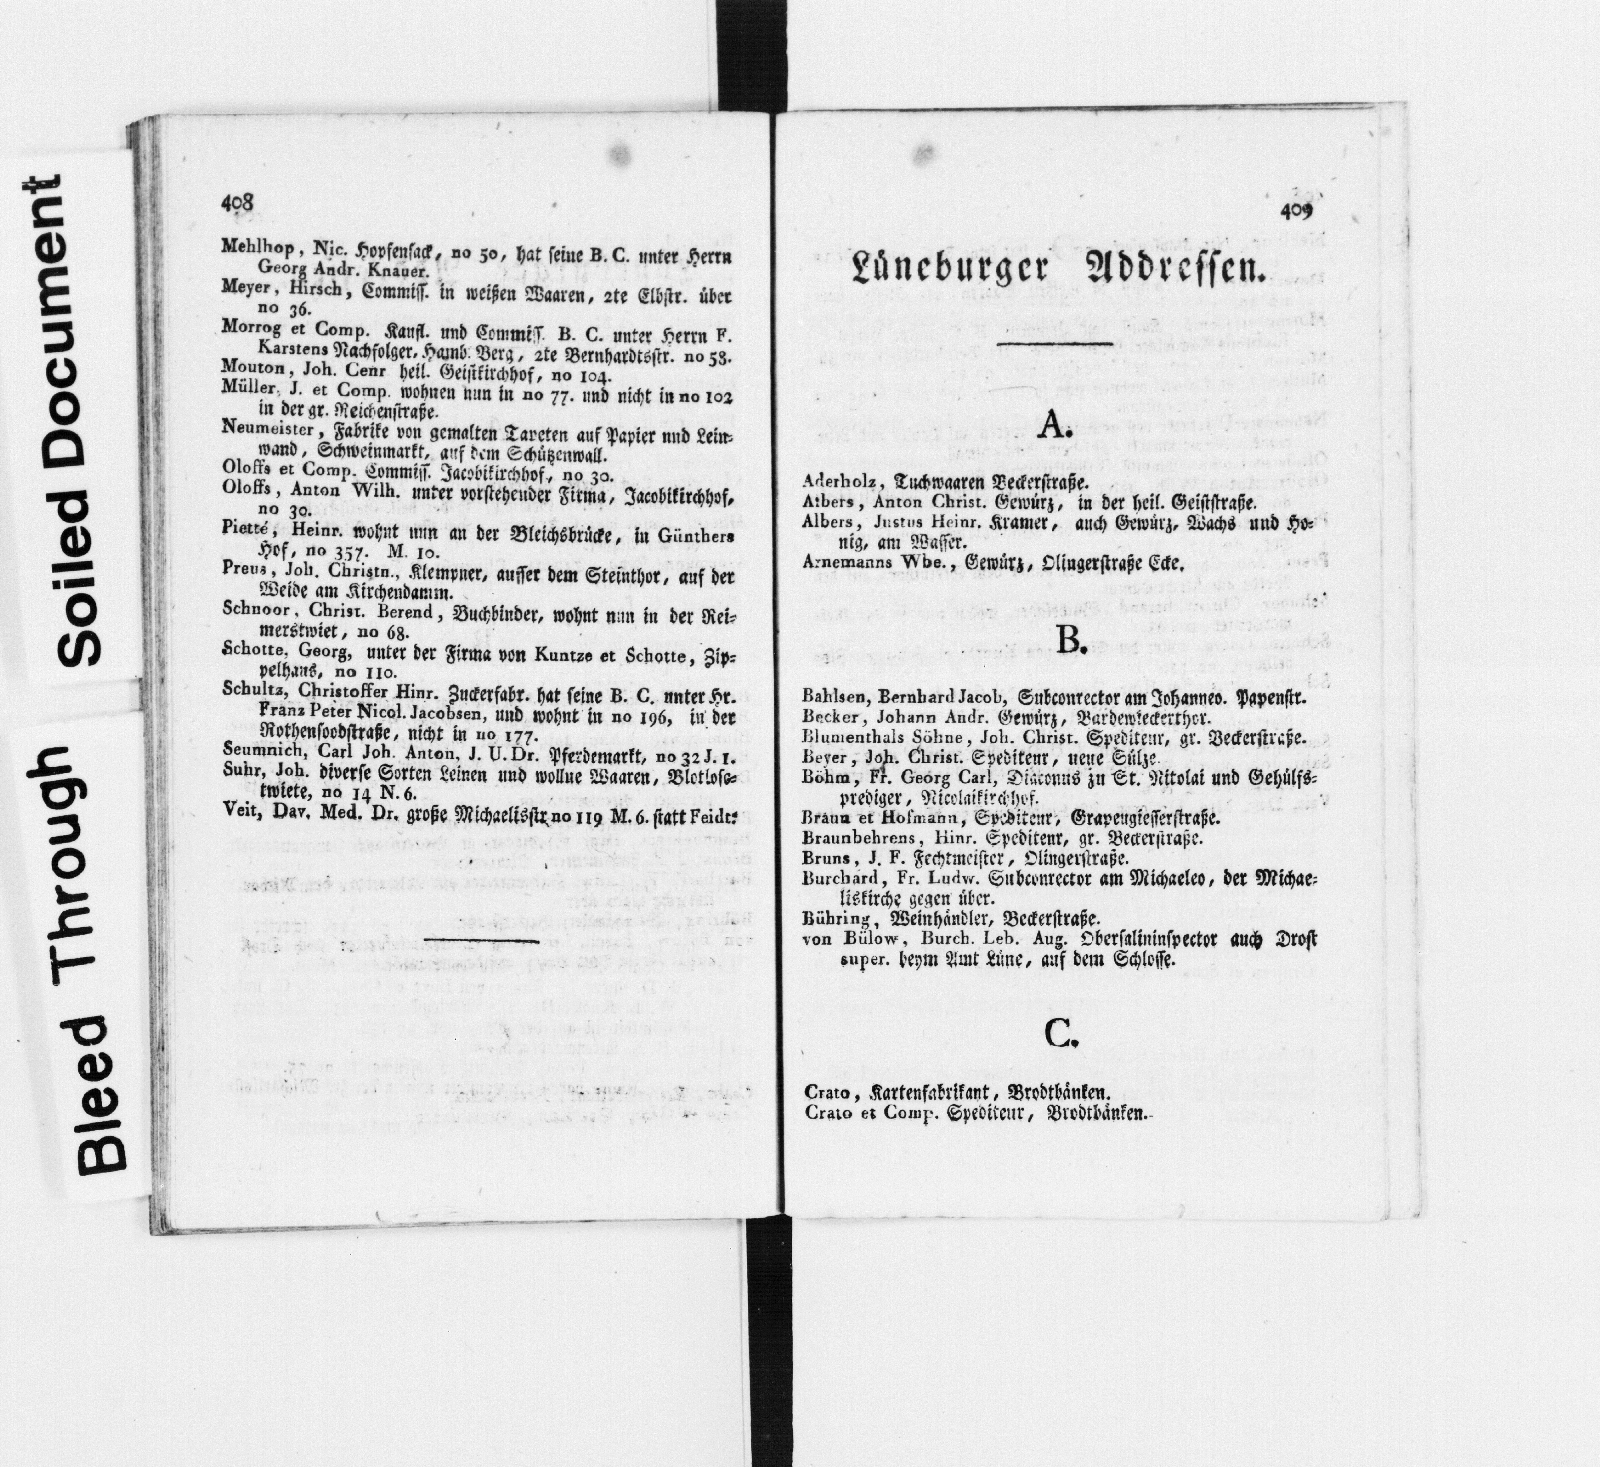 Soiled Document
Bleed Through
408
Mehlhop, Nic. Hopfensack, no 50, hat seine B. C. unter Herrn
Georg Andr. Knauer.
Meyer, Hirsch, Commiss. in weißen Waaren, 2te Elbstr. über
no 36.
Morrog et Comp. Kaufl. und Commiss. B. C. unter Herrn F.
Karstens Nachfolger, Hamb. Berg, 2te Bernhardtsstr. no 58.
Mouton, Joh. Cenr heil. Geistkirchhof, no 104.
Müller, J. et Comp. wohnen nun in no 77. und nicht in no 102
in der gr. Reichenstraße.
Neumeister, Fabrike von gemalten Tapeten auf Papier und Lein-
wand, Schweinmarkt, auf dem Schützenwall.
Oloffs et Comp. Commiss. Jacobikirchhof, no 30.
Oloffs, Anton Wilh. unter vorstehender Firma, Jacobikirchhof,
no 30.
Pietté, Heinr. wohnt nun an der Bleichsbrücke, in Günthers
Hof, no 357. M. 10.
Preus, Joh. Christn., Klempner, ausser dem Steinthor, auf der
Weide am Kirchendamm.
Schnoor, Christ. Berend, Buchbinder, wohnt nun in der Rei-
merstwiet, no 68.
Schotte, Georg, unter der Firma von Kuntze et Schotte, Zip-
pelhaus, no 110.
Schultz, Christoffer Hinr. Zuckerfabr. hat seine B. C. unter Hr.
Franz Peter Nicol. Jacobsen, und wohnt in no 196, in der
Rothensoodstraße, nicht in no 177.
Seumnich, Carl Joh. Anton, J. U. Dr. Pferdemarkt, no 32 J. 1.
Suhr, Joh. diverse Sorten Leinen und wollne Waaren, Plotlose-
twiete, no 14 N. 6.
Veit, Dav. Med. Dr. große Michaelisstr no 119 M. 6. statt Feidt.
409
Lüneburger Addressen.
A.
Aderholz, Tuchwaaren Beckerstraße.
Albers, Anton Christ. Gewürz, in der heil. Geiststraße.
Albers, Justus Heinr. Kramer, auch Gewürz, Wachs und Ho-
nig, am Wasser.
Arnemanns Wbe., Gewürz, Olingerstraße Ecke.
B.
Bahlsen, Bernhard Jacob, Subconrector am Johanneo. Papenstr.
Becker, Johann Andr. Gewürz, Bardewieckerthor.
Blumenthals Söhne, Joh. Christ. Spediteur, gr. Beckerstraße.
Beyer, Joh. Christ. Spediteur, neue Sülze
Böhm, Fr. Georg Carl, Diaconus zu St. Nikolai und Gehülfs-
prediger, Nicolaikirchhof.
Braun et Hofmann, Spediteur, Grapengiesserstraße.
Braunbehrens, Hinr. Spediteur, gr. Beckerstraße.
Bruns, J. F. Fechtmeister, Olingerstraße.
Burchard, Fr. Ludw. Subconrector am Michaeleo, der Michae-
liskirche gegen über.
Bühring, Weinhändler, Beckerstraße.
von Bülow, Burch. Leb. Aug. Obersalininspector auch Drost
super. beym Amt Lüne, auf dem Schlosse.
C.
Crato, Kartenfabrikant, Brodtbänken.
Crato et Comp. Spediteur, Brodtbänken.